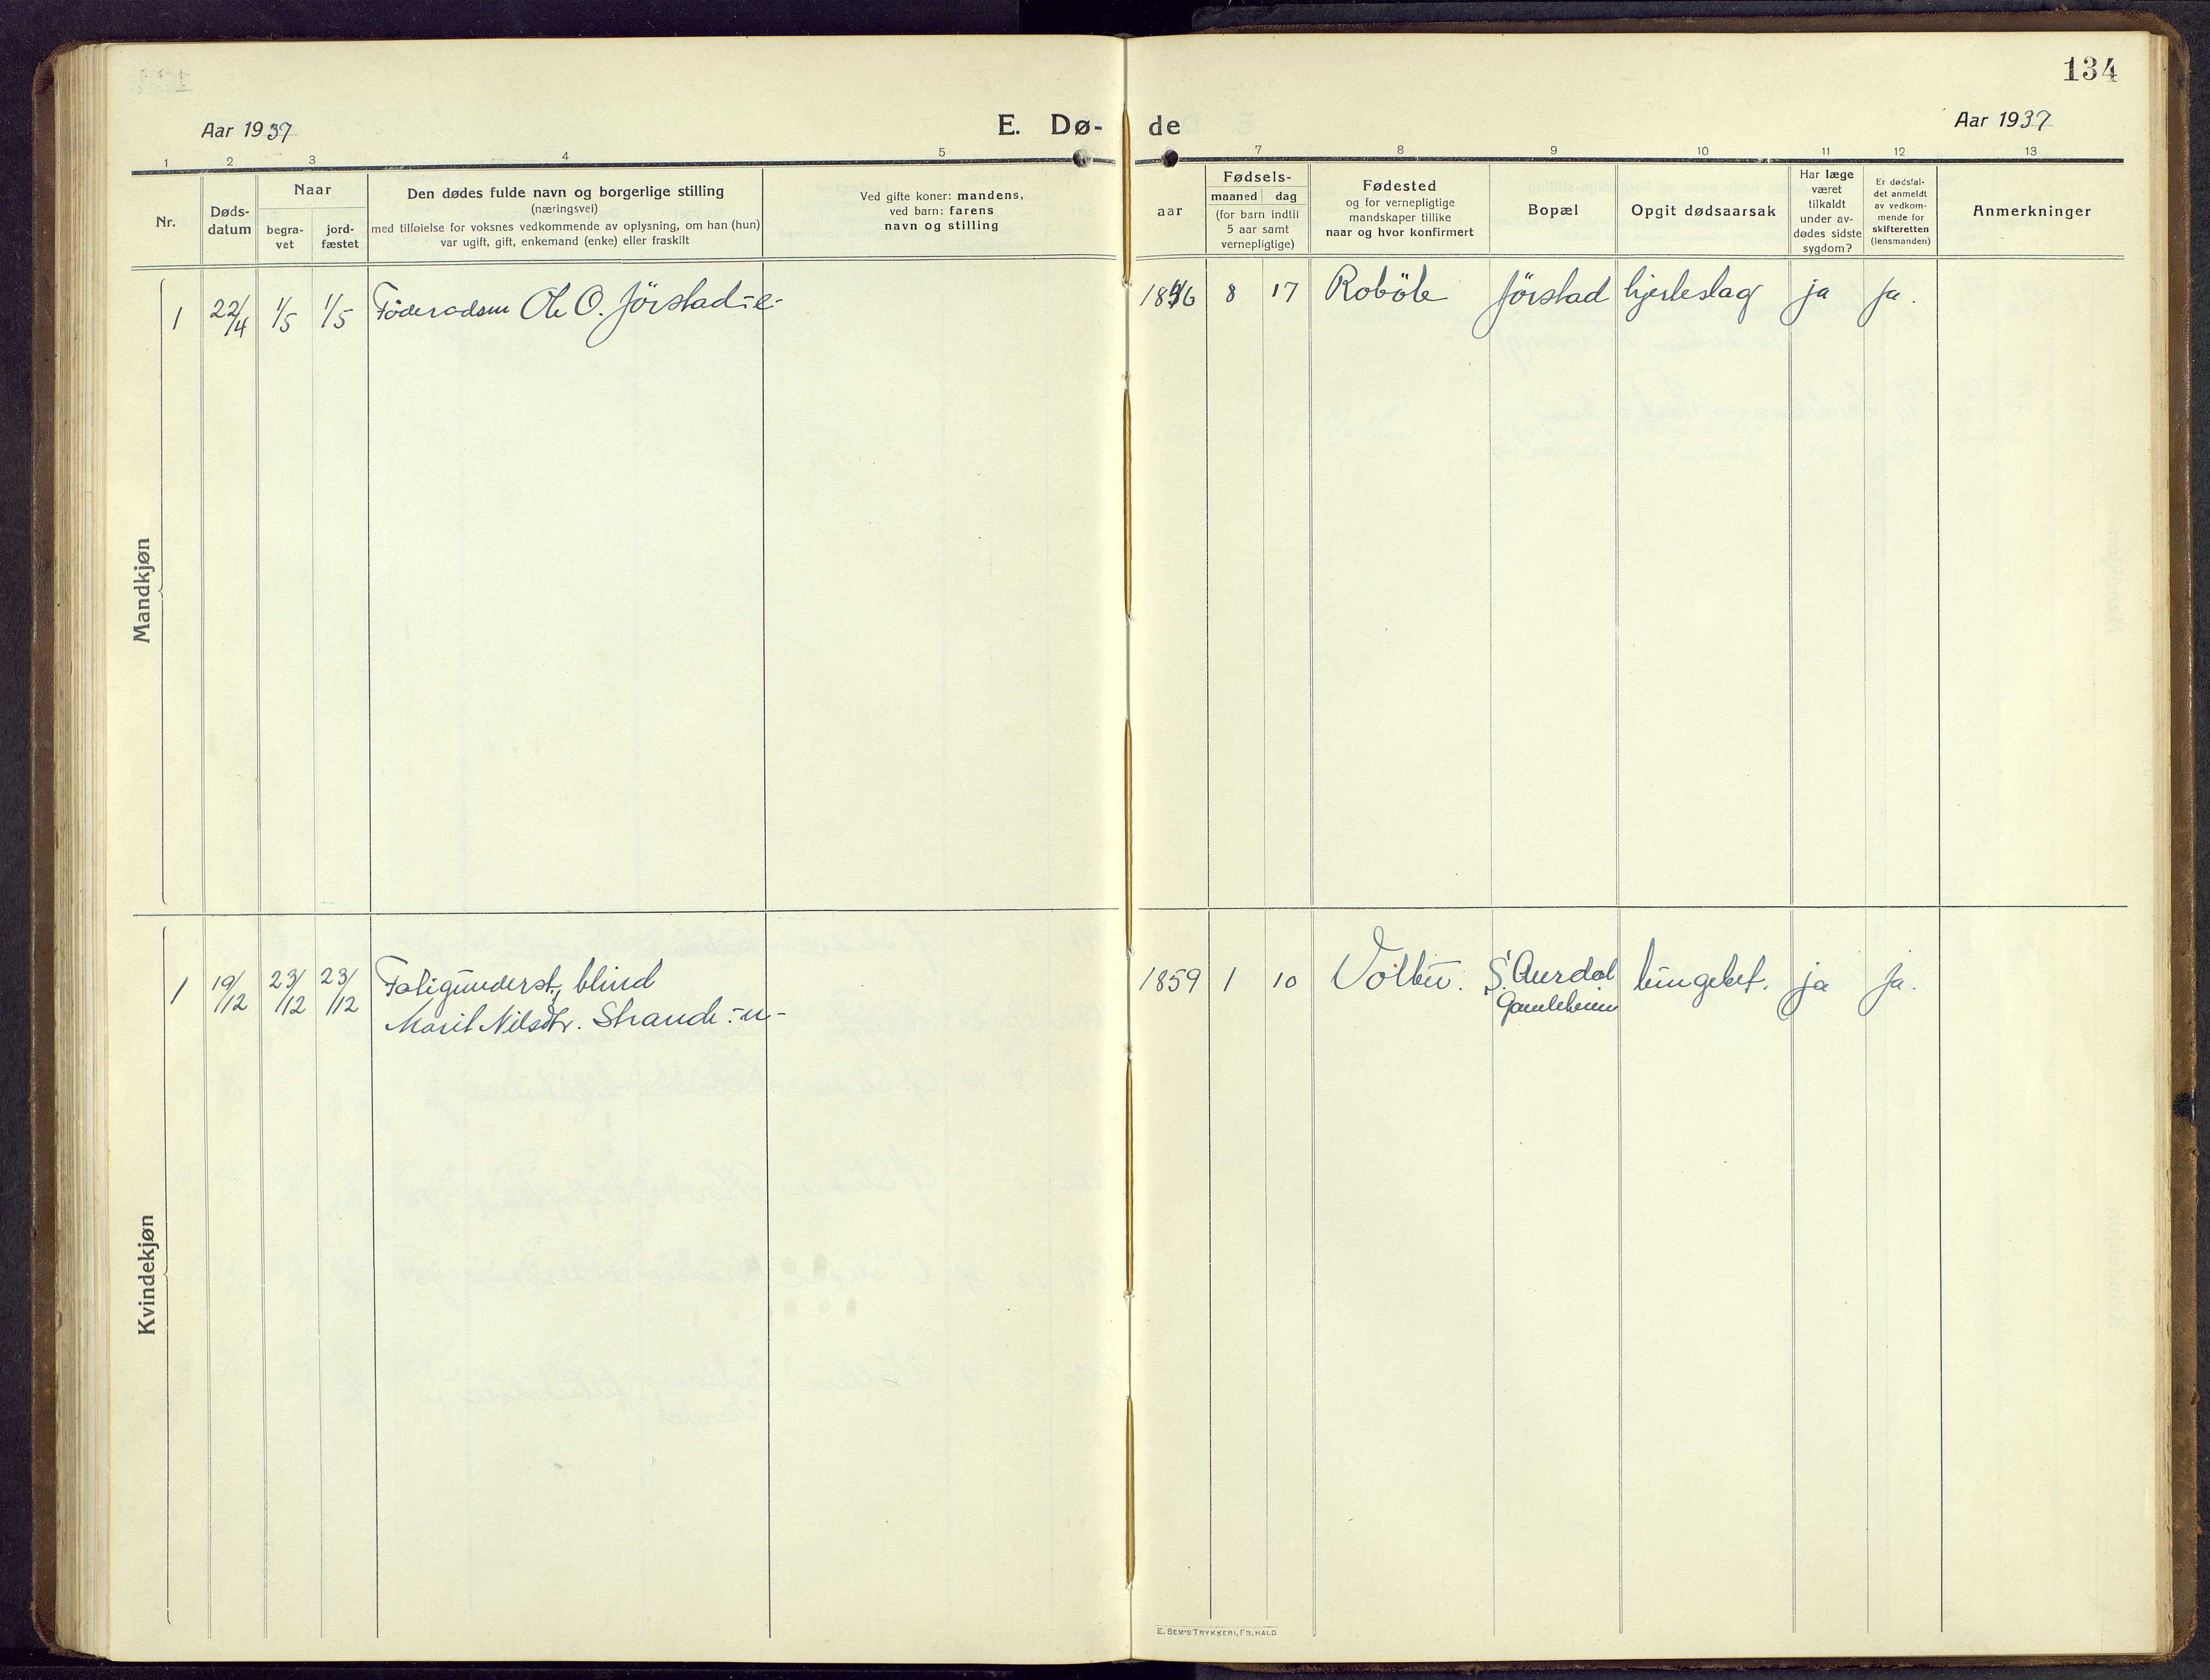 134
Aar 1937
E. Dø- de
Aar 1937
1 2 3 4 5 7 8 9 10 11 12 13
Nr.
Døds-
datum
Naar
begra-
vet
jord-
fæstet
Den dødes fulde navn og borgerlige stilling
(næringsvei)
med tilføielse for voksnes vedkommende av oplysning, om han (hun)
var ugift, gift, enkemand (enke) eller fraskilt
Ved gifte koner: mandens,
ved barn: farens
navn og stilling
aar
Fødsels-
maaned dag
(for barn indtil
5 aar samt
vernepligtige)
Fødested
og for vernepligtige
mandskaper tillike
naar og hvor konfirmert
Bopæl
Opgit dødsaarsak
Har læge
været
tilkaldt
under av-
dødes sidste
sygdom?
Er dødsfal-
det anmeldt
av vedkom-
mende for
skifteretten
(lensmanden)
Anmerkninger
Mandkjøn
1 22/4 1/5 1/5 Föderadsm Ole O. Jörstad -e- 8 17 Roböle Jörstad hjerteslag ja ja.
Kvindekjøn
1 19/12 23/12 23/12 Fatigunderst, blind
Marit Nilsdtr. Strande -u- 1859 1 10 Volbu. S. Aurdal
Gamleheim
lungebet. ja ja.
E. SEM'S TRYKKERI, FR. HALD